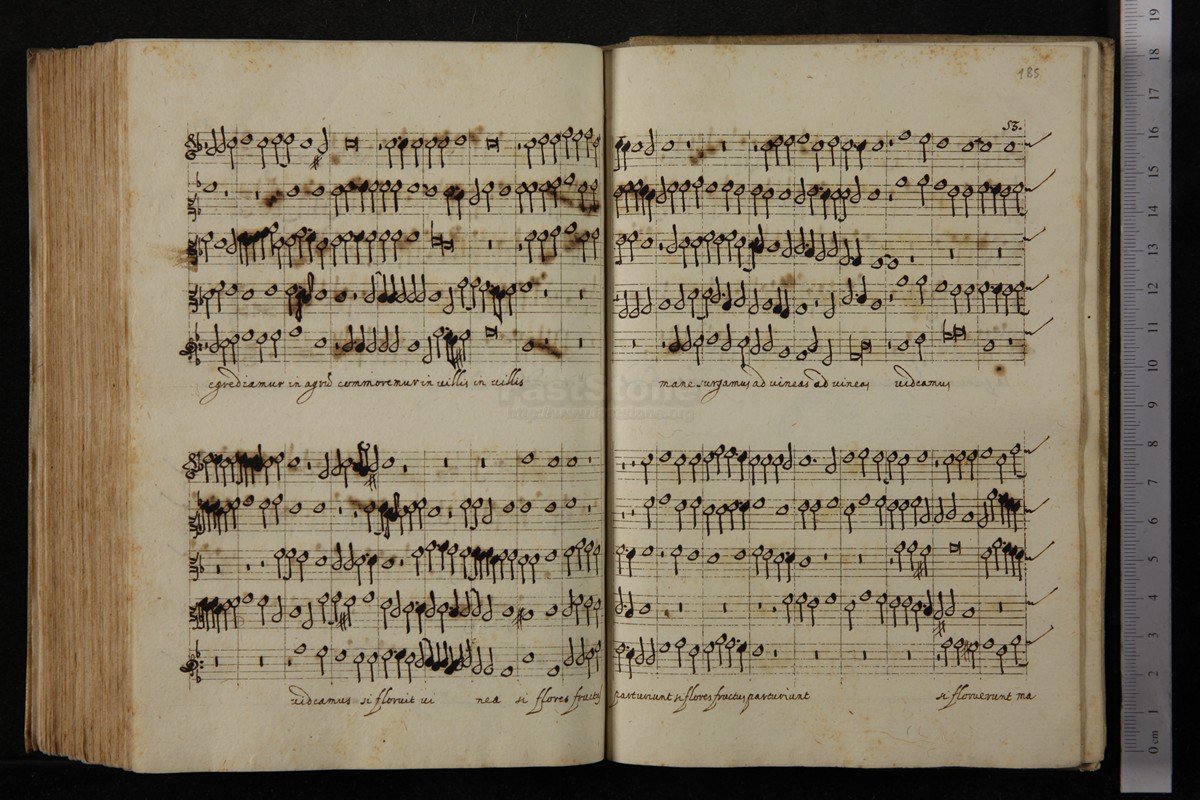 185
53.
egrediamur in agrũ commoremur in villis in villis
mane surgamus ad vineas ad vineas videamus
videamus si floruit vi nea si flores fructus
parturiunt si flores fructus parturiunt si floruerunt ma
FastStone
19
18
17
16
15
14
13
12
11
10
9
8
7
6
5
4
3
2
1
0 cm